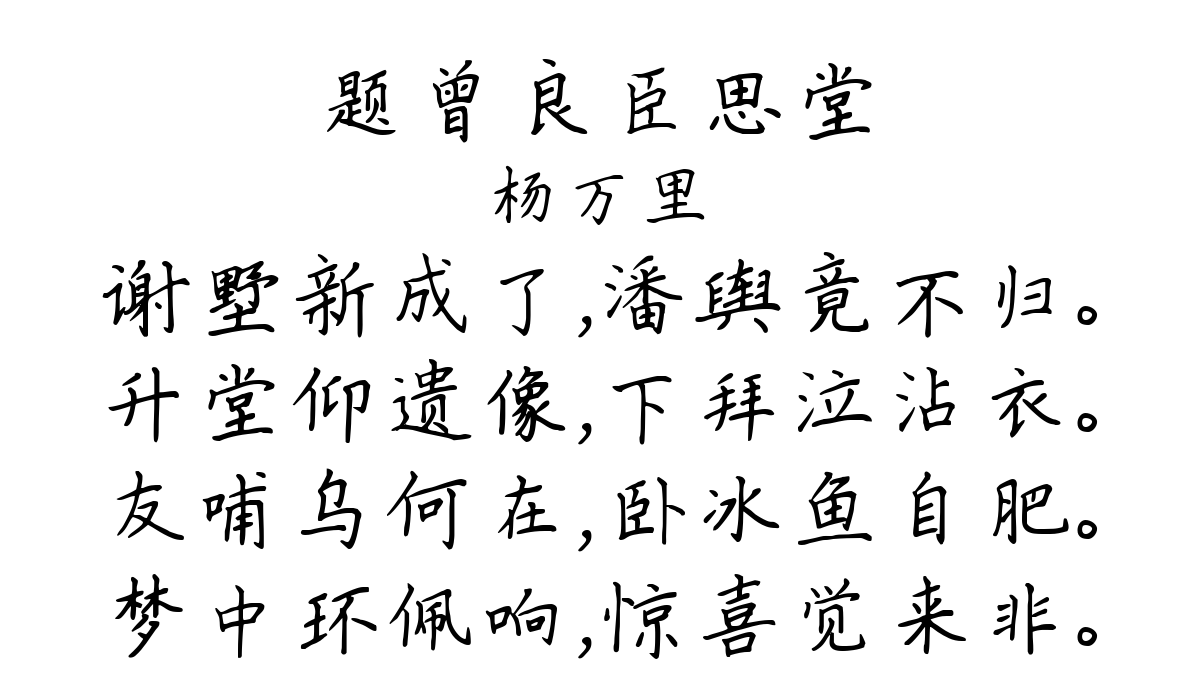 题曾良臣思堂
杨万里
谢墅新成了,潘舆竟不归。
升堂仰遗像,下拜泣沾衣。
友哺乌何在,卧冰鱼自肥。
梦中环佩响,惊喜觉来非。